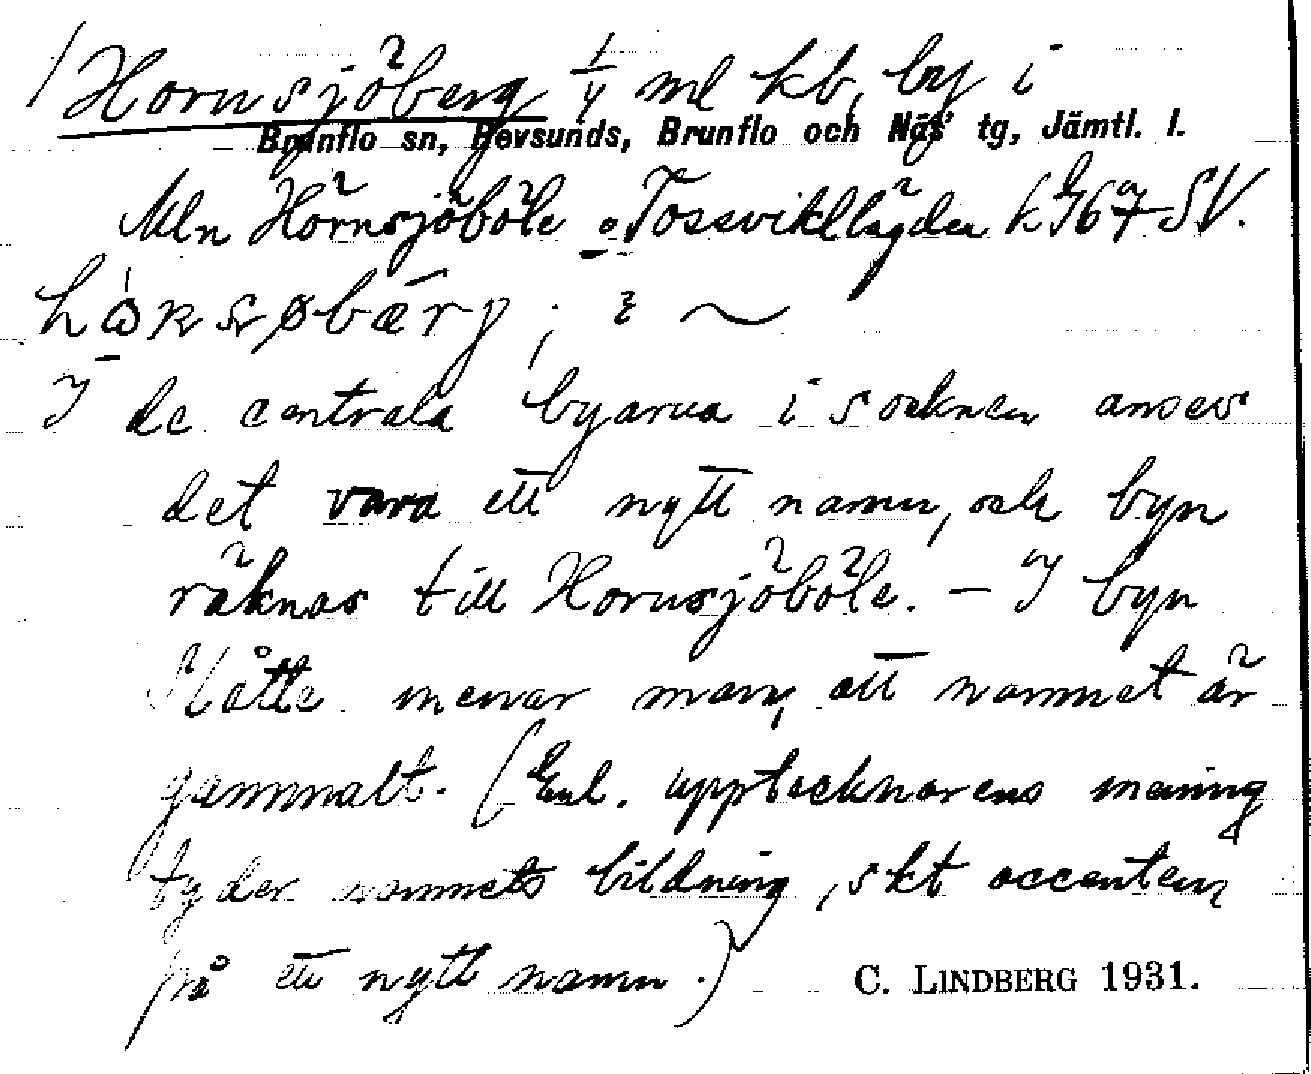 Hornsjöberg 1/4 ml kb, by i
Brunflo sn, Revsunds, Brunflo och Näs' tg, Jämtl. l.
Mln Hörnsjöböle o. k 967 SV.
I de centrala byarna i socknen anses
det vara ett nytt namn, och byn
räknas till Hornsjöböle. – I byn
Slåtte menar man, att namnet är
gammalt. (Enl. upptecknarens mening
tyder namnets bildning, skt accenten,
på ett nytt namn.)
C. LINDBERG 1931.